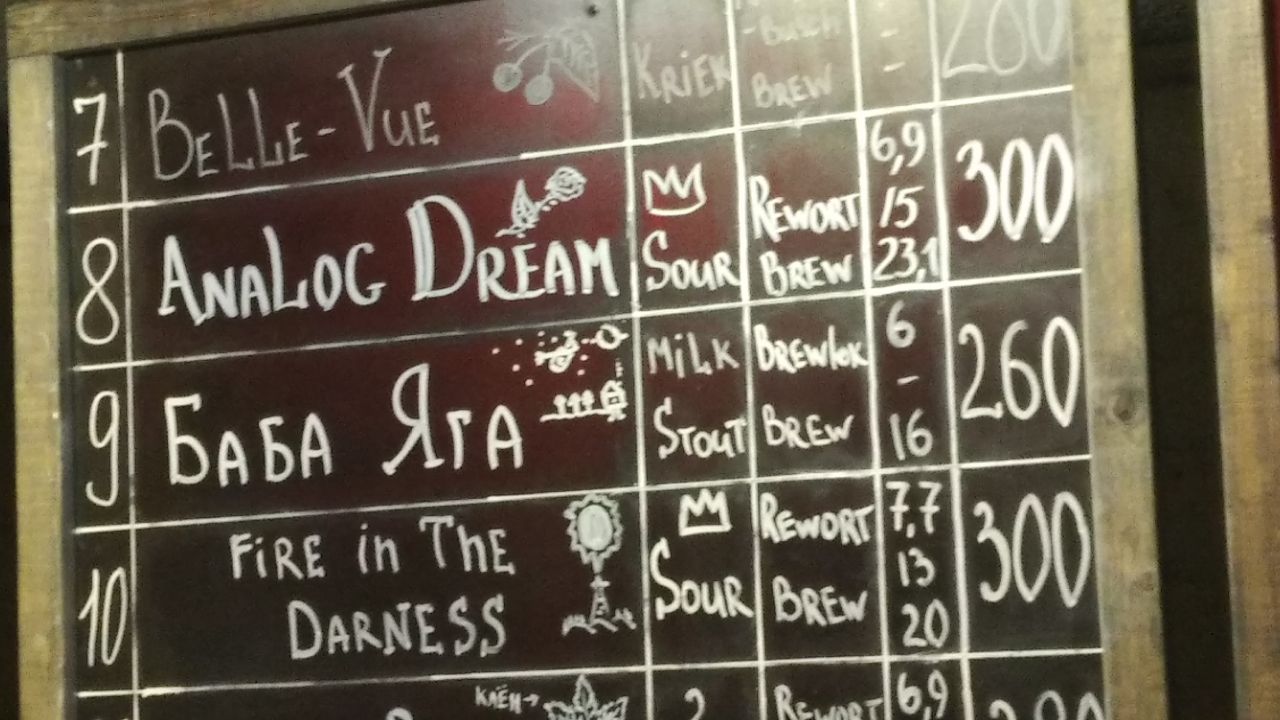 7 BELLE-VUE KRIEK BREW - - 280
8 ANALOG DREAM SOUR REWORT BREW 6,9 15 23,1 300
9 БАБА ЯГА MiLK STOUT BREWlok BREW 6 - 16 260
10 FiRE in ThE DARNESS SOUR REWORT BREW 7,7 13 20 300
КЛЁН→ REWORT 6,9